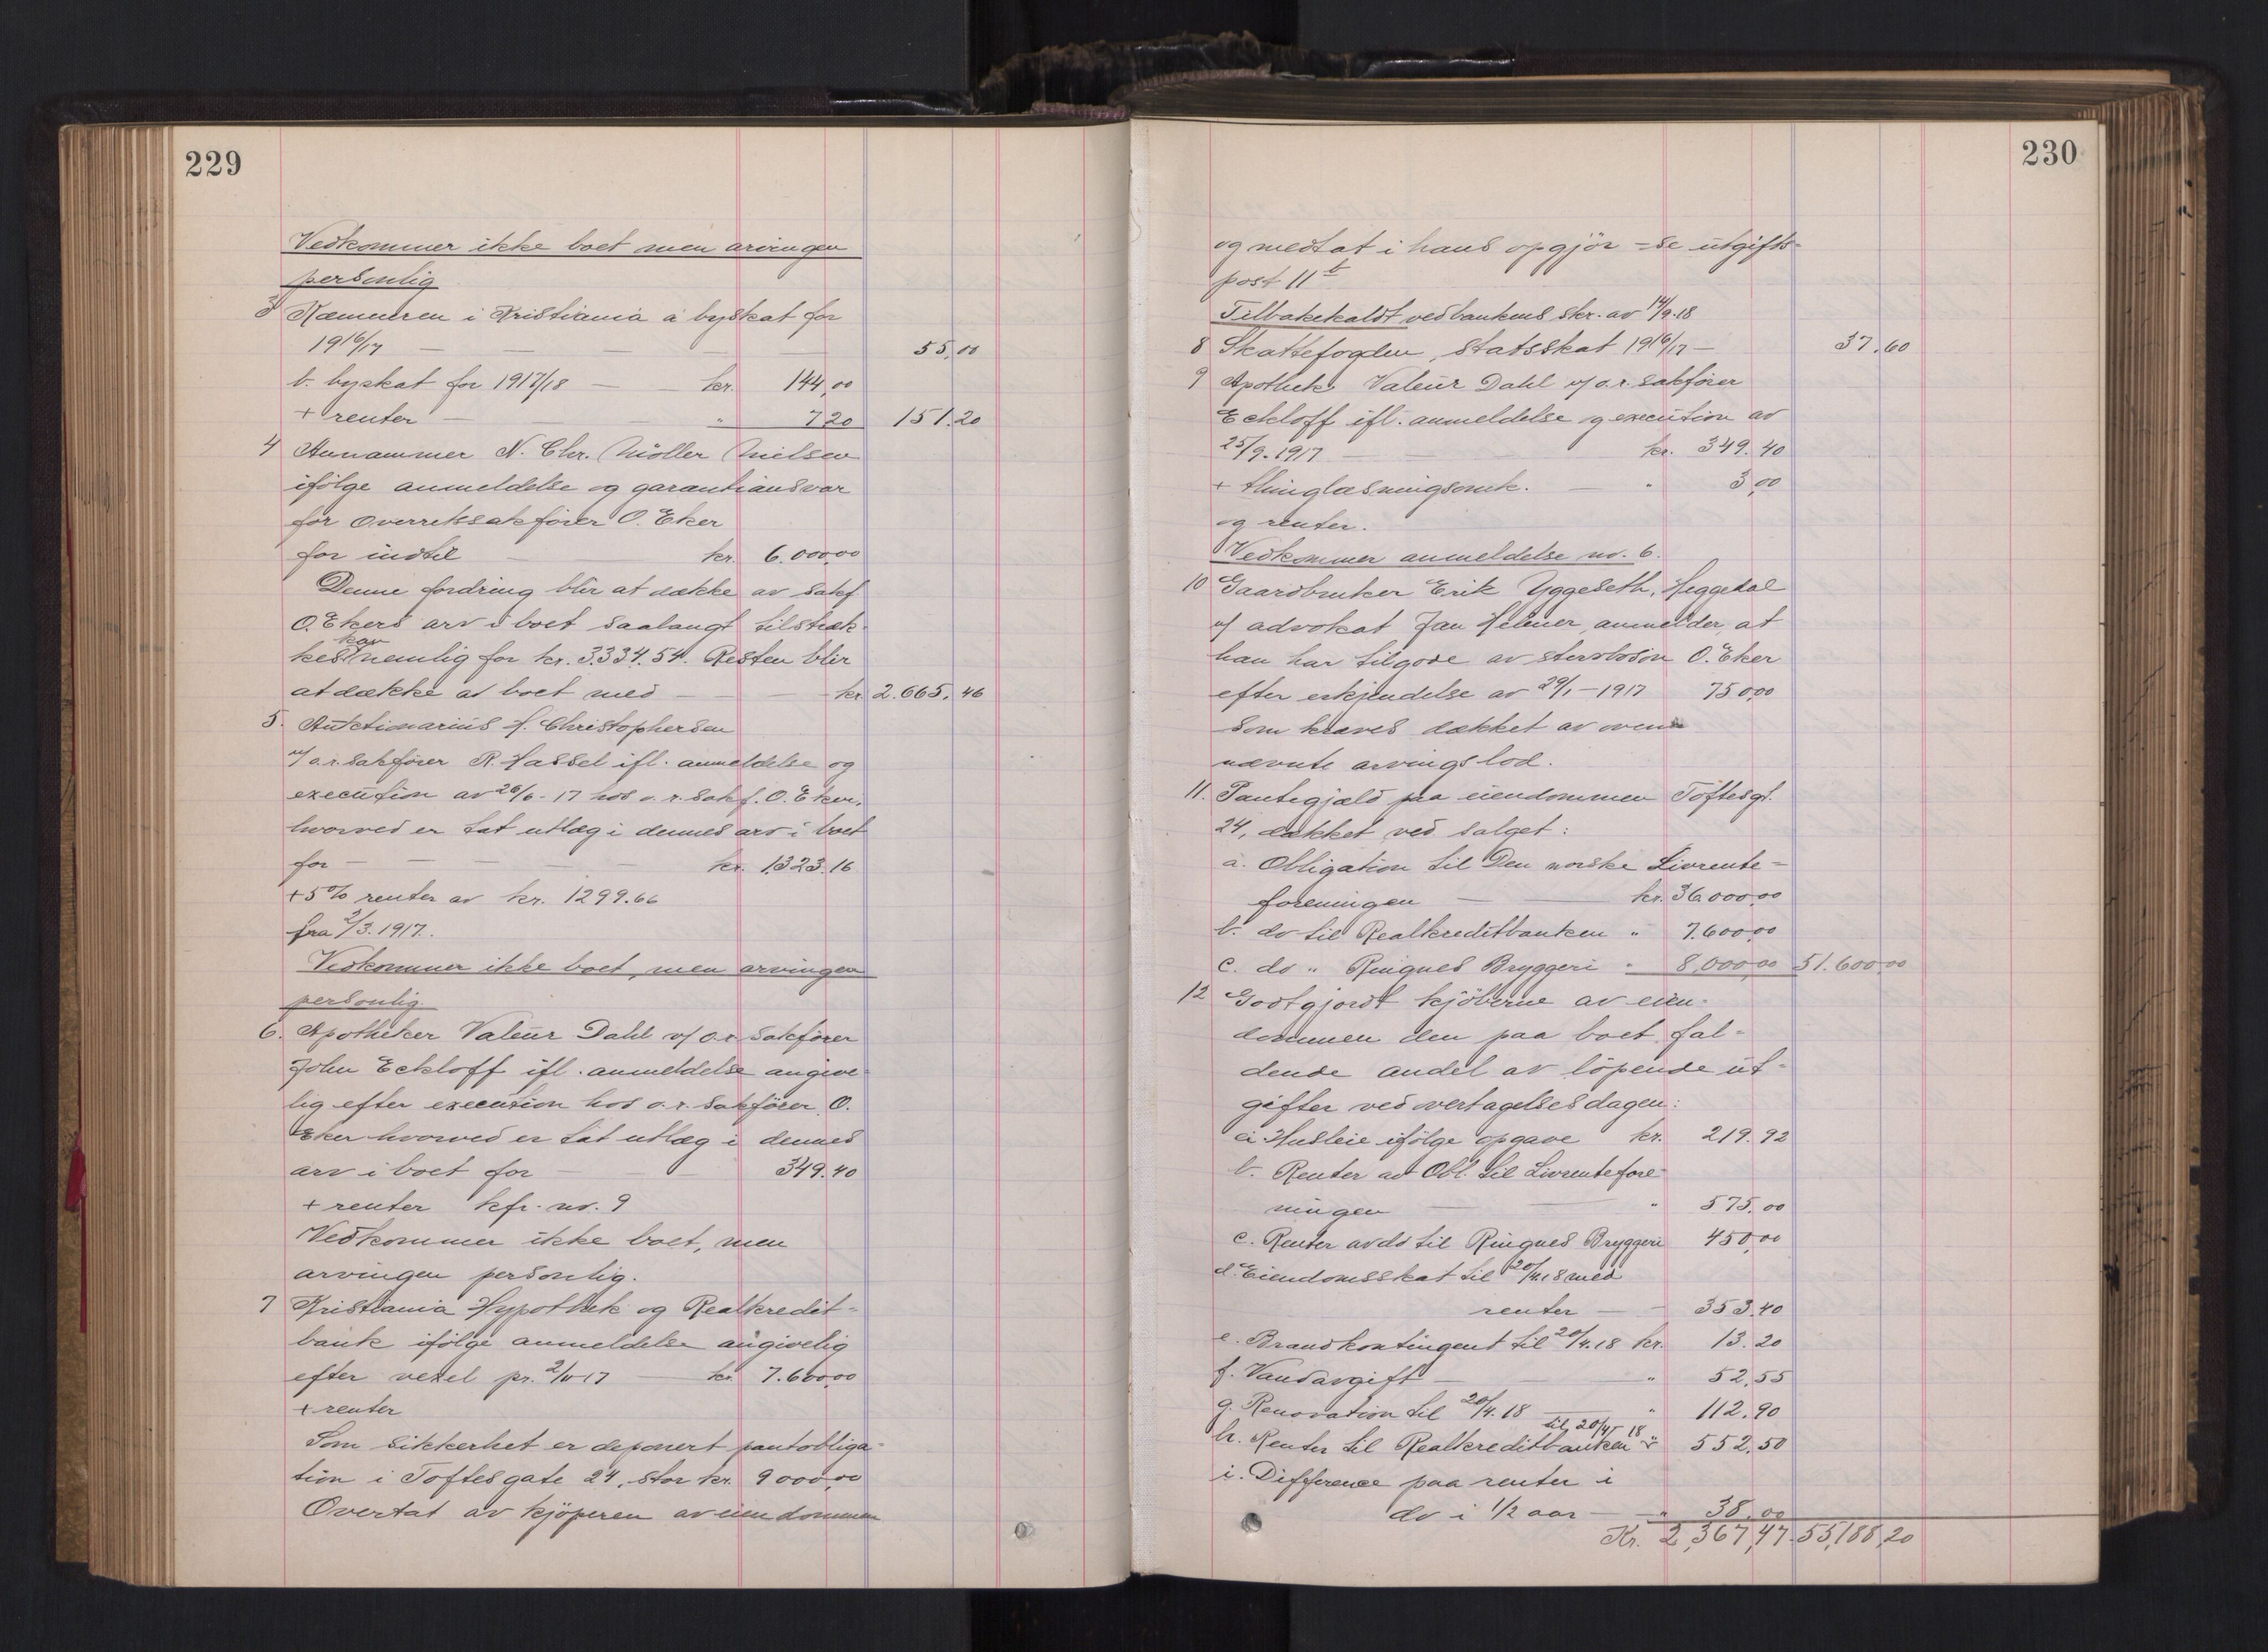 229
Vedkommer ikke boet men arvingen
personlig
3 Kæmneren i Kristiania a byskat for
1916/17 — — — — — 55,00
b. byskat for 1917/18 — kr. 144,00
+ renter — — — " 7 20 151.20
4 Annammer N. Chr. Möller Nielsen
ifölge anmeldelse og garantiansvar
for Overretssakförer O. Eker
for indtil — kr. 6.000,00
Denne fordring blir at dække av sakf.
O. Ekers arv i boet saalangt tilstræk-
kes kan nemlig for kr. 3.334.54. Resten blir
at dække av boet med — kr. 2.665,46
5. Auktionarius H. Christophersen
v/ o.r.sakförer R. Hassel ifl. anmeldelse og
execution av 26/6-17 hos o.r.sakf. O. Eker,
hvorved er tat utlæg i dennes arv i boet
for — — — — — kr. 1323.16
+ 5% renter av kr. 1299.66
fra 2/3.1917.
Vedkommer ikke boet, men arvingen
personlig.
6. Apotheker Valeur Dahl v/ o.r. sakförer
John Eckloff ifl. anmeldelse angive-
lig efter execution hos o.r. sakförer O.
Eker hvorved er tat utlæg i dennes
arv i boet for — — — 349.40
+ renter kfr. nr. 9
Vedkommer ikke boet, men
arvingen personlig.
7 Kristiania Hypothek og Realkredit-
bank ifölge anmeldelse angivelig
efter vexel pr. 2/11-17 — kr 7.600,00
+ renter
Som sikkerhet er deponert pantobliga-
tion i Toftesgate 24, stor kr. 9000,00
Overtat av kjöperen av eiendommen
230
og medtat i hans opgjör = se utgifts-
post 11 b
Tilbakekaldt ved bankens skr. av 14/9-18
8 Skattefogden, statsskat 1916/17 — 37.60
9 Apothek. Valeur Dahl v/ o.r. sakförer
Eckloff ifl. anmeldelse og execution av
25/9.1917 — kr. 349.40
+ thinglæsningsomk. — " 3,00
og renter.
Vedkommer anmeldelse nr. 6.
10 Gaardbruker Erik Yggeseth, Heggedal
v/ advokat Jan Helmer, anmelder at
han har tilgode av stervbosön O. Eker
efter erkjendelse av 29/1-1917 750,00
som kræves dækket av oven
nævnte arvingslod.
11. Pantegjæld paa eiendommen Toftesgt.
24, dækket ved salget:
a. Obligation til Den norske Livrente-
foreningen — — kr. 36.000,00
b. do til Realkreditbanken " 7.600,00
c. do " Ringnes Bryggeri " 8,000,00 51.600,00
12 Godtgjordt kjöberne av eien-
dommen den paa boet fal-
dende andel av löpende ut-
gifter ved overtagelsesdagen:
a Husleie ifölge opgave kr. 219.92
b. Renter av Obl. til Livrentefore-
ningen — — " 575.00
c. Renter av do til Ringnes Bryggeri 450,00
d. Eiendomsskat til 20/4.18 med
renter — — 353.40
e. Brandkontingent til 20/4.18 kr. 13.20
f. Vandavgift — " 52.55
g. Renovation til 20/4.18 — " 112.90
h. Renter til Realkreditbanken til 20/4-18 " 552.50
i. Difference paa renter i
do i 1/2 aar — " 38.00
Kr. 2,367,47 55,188,20